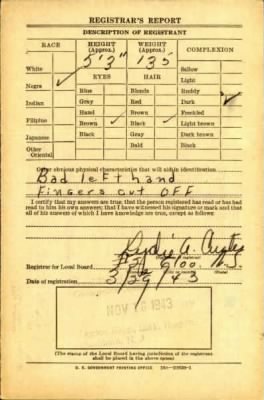 REGISTRAR'S REPORT
DESCRIPTION OF REGISTRANT
RACE HEIGHT (Approx.) WEIGHT (Approx.) COMPLEXION
5'3" 135
White Sallow
EYES HAIR Light
Negro ✓ Blue Blonde Ruddy
Indian Gray Red Dark ✓
Hazel Brown Freckled
Filipino Brown ✓ Black ✓ Light brown
Japanese Black Gray Dark brown
Other Oriental Bald Black
Other obvious physical characteristics that will aid in identification
Bad left hand
Fingers cut OFF
I certify that my answers are true; that the person registered has read or has had
read to him his own answers; that I have witnessed his signature or mark and that
all of his answers of which I have knowledge are true, except as follows:
Registrar for Local Board
(City or county) (State)
Date of registration 3/29/43
NOV 16 1943
(The stamp of the Local Board having jurisdiction of the registrant
shall be placed in the above space)
U. S. GOVERNMENT PRINTING OFFICE